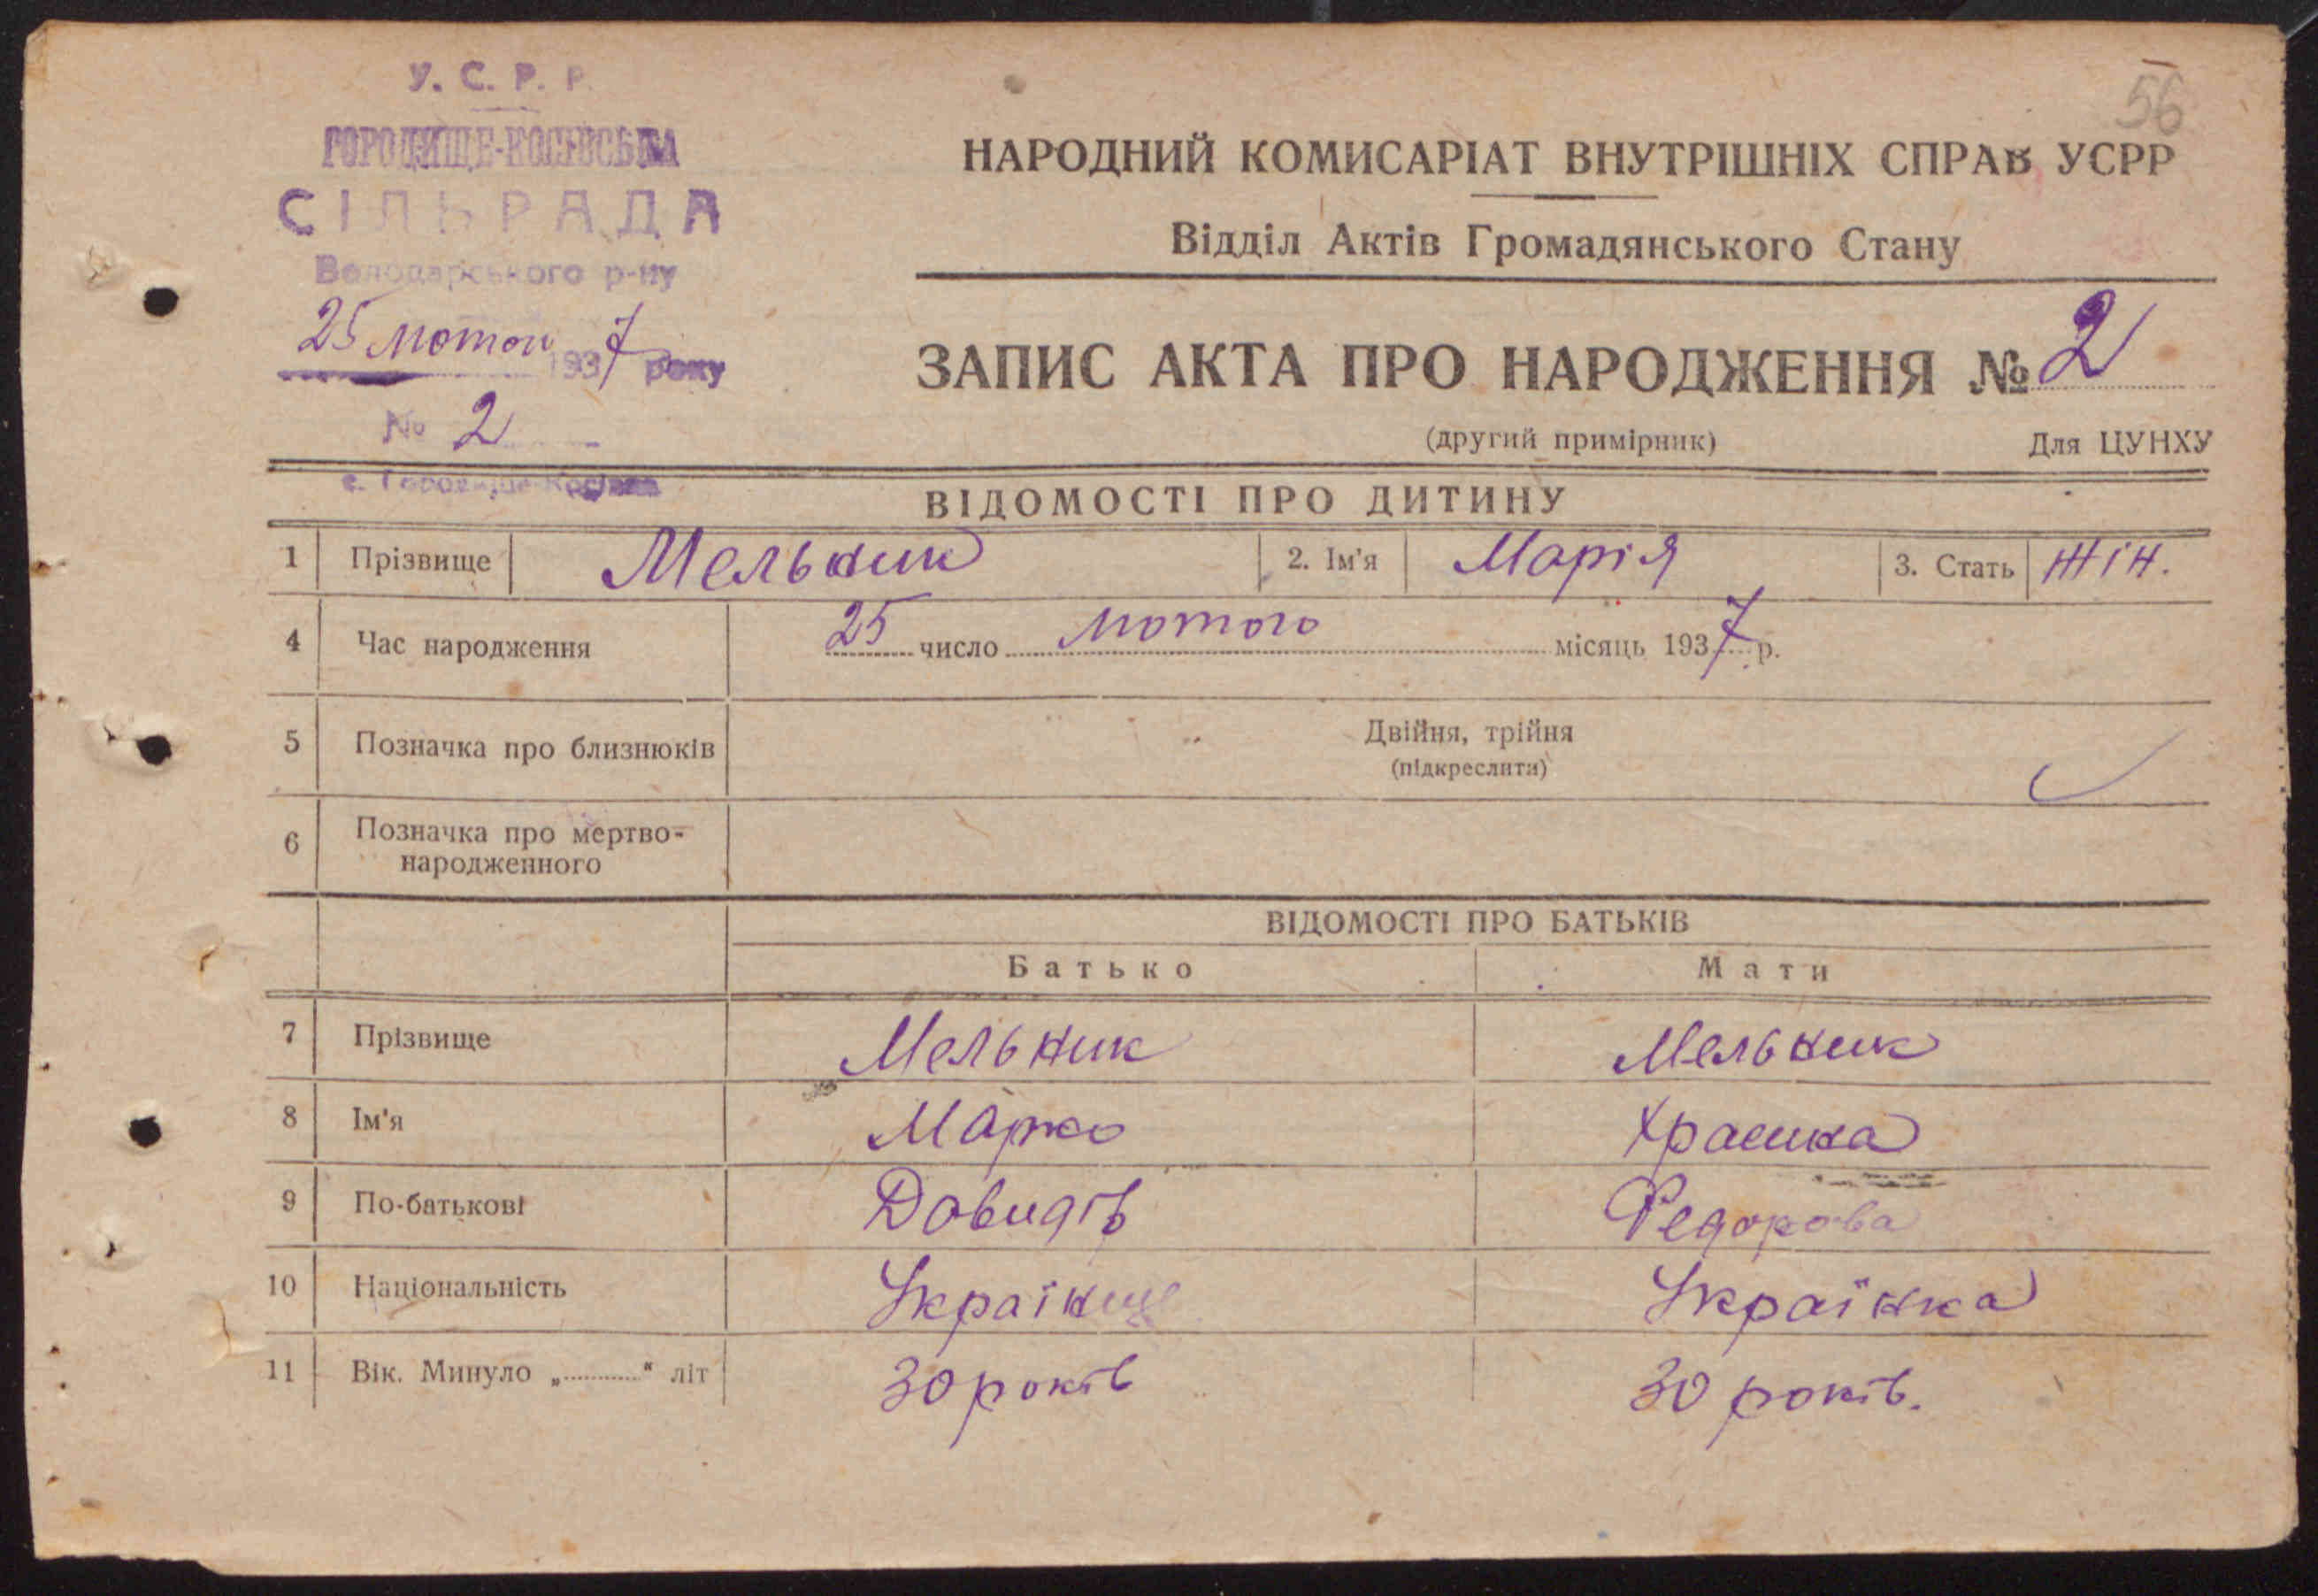 56
У. С. Р. Р.
ГОРОДИЩЕ-КОСІВСЬКА
СІЛЬРАДА
Володарського р-ну
25 лютого 1937 року
№ 2
с. Городище-Косівка
НАРОДНИЙ КОМИСАРІАТ ВНУТРІШНІХ СПРАВ УСРР
Відділ Актів Громадянського Стану
ЗАПИС АКТА ПРО НАРОДЖЕННЯ № 2
(другий примірник) Для ЦУНХУ
ВІДОМОСТІ ПРО ДИТИНУ
1 Прізвище Мельник 2. Ім'я Марія 3. Стать жін.
4 Час народження 25 число лютого місяць 1937 р.
5 Позначка про близнюків Двійня, трійня
(підкреслити)
6 Позначка про мертво-
народженного
ВІДОМОСТІ ПРО БАТЬКІВ
Батько Мати
7 Прізвище Мельник Мельник
8 Ім'я Марко
9 По-батькові Довидів Федорова
10 Національність Українець Українка
11 Вік. Минуло „............“ літ 30 років 30 років.